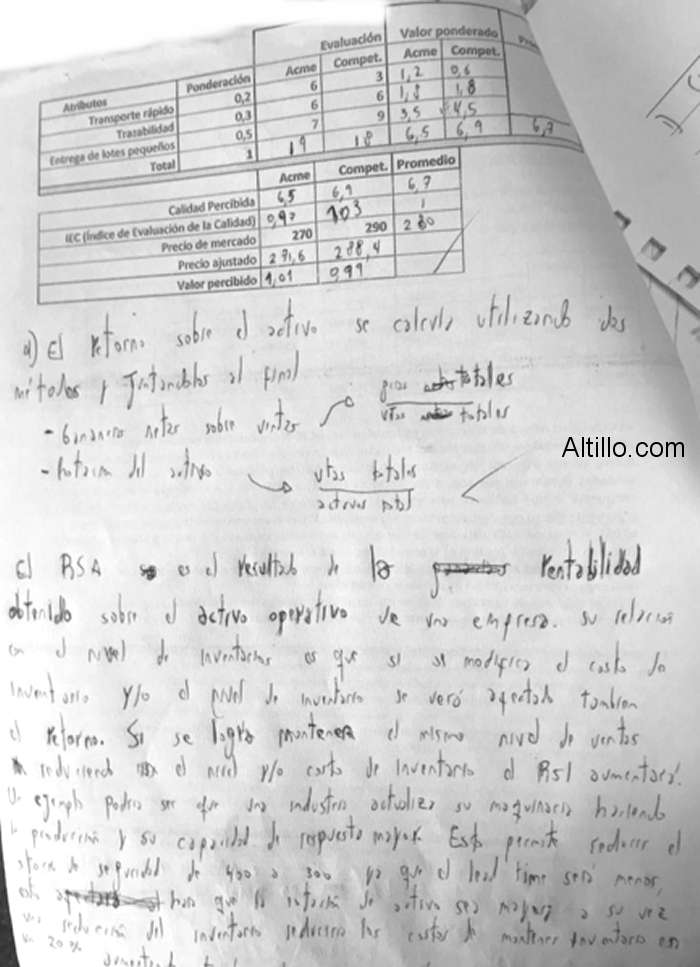 Evaluación Valor ponderado
Atributos Ponderación Acme Compet. Acme Compet.
Transporte rápido 0,2 6 3 1,2 0,6
Trazabilidad 0,3 6 6 1,8 1,8
Entrega de lotes pequeños 0,5 7 9 3,5 4,5
Total 1 19 18 6,5 6,9 6,7
Acme Compet. Promedio
Calidad Percibida 6,5 6,9 6,7
IEC (Índice de Evaluación de la Calidad) 0,97 103 1
Precio de mercado 270 290 280
Precio ajustado 271,6 288,4
Valor percibido 1,01 0,99
a) El retorno sobre el activo se calcula utilizando dos
métodos y juntandolos al final
- Ganancias netas sobre ventas gcias totales
vtas totales
- Rotacion del activo vtas totales
activos total
Altillo.com
El RSA es el resultado de la rentabilidad
obtenido sobre el activo operativo de una empresa. su relación
con el nivel de inventarios es que si se modifica el costo de
inventario y/o el nivel de inventario se verá afectado tambien
el retorno. Si se logra mantener el mismo nivel de ventas
reduciendo el nivel y/o costo de inventario el RSI aumentará.
Un ejemplo podria ser que una industria actualiza su maquinaria haciendo
produccion y su capacidad de respuesta mayor. Esto permite reducir el
stock de seguridad de 400 a 300 ya que el lead time será menor,
esto hara que la rotación de activo sea mayor a su vez
una reducción del inventario reduciria los costos de mantener inventario en
un 20%